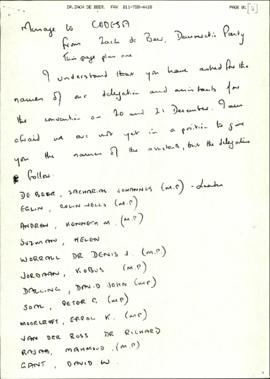 DR. ZACH DE BEER. FAX 011-788-4418 PAGE 01
Message to CODESA
from Zach de Beer, Democratic Party
This page plus one
I understand that you have asked for the
names of our delegation and assistants for
the convention on 20 and 21 December. I am
afraid we are not yet in a position to give
you the names of the assistants, but the delegation
follow
DE BEER, ZACHARIAS JOHANNES (M.P.) - Leader
EGLIN, COLIN WELLS (M.P.)
ANDREW, KENNETH M. (M.P.)
SUZMAN, HELEN
WORRALL DR DENIS J. (M.P.)
JORDAAN, KOBUS (M.P.)
DALLING, DAVID JOHN (M.P.)
SOAL, PETER G. (M.P.)
MOORCROFT, ERROL K. (M.P.)
VAN DER ROSS DR RICHARD
RAJAB, MAHMOUD (M.P.)
GANT, DAVID W.